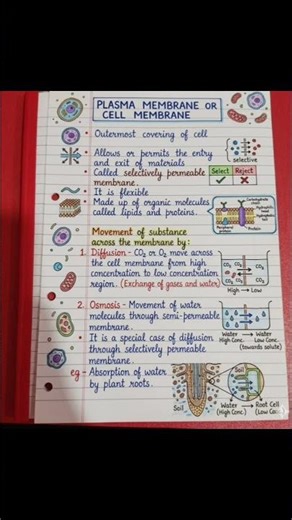 PLASMA MEMBRANE OR
CELL MEMBRANE
• Outermost covering of cell
• Allows or permits the entry
and exit of materials
selective
• Called selectively permeable
membrane.
Select Reject
• It is flexible
• Made up of organic molecules
called lipids and proteins.
Movement of substance
across the membrane by:
1. Diffusion - CO₂ or O₂ move across
the cell membrane from high
concentration to low concentration
region. (Exchange of gases and water)
CO₂ CO₂
CO₂ CO₂
High → Low
2. Osmosis - Movement of water
molecules through semi-permeable
membrane.
Water → Water
High Conc. Low Conc.
(towards solute)
• It is a special case of diffusion
through selectively permeable
membrane.
eg - Absorption of water
by plant roots.
Soil
Soil
Water → Root Cell
(High Conc.) (Low Conc.)